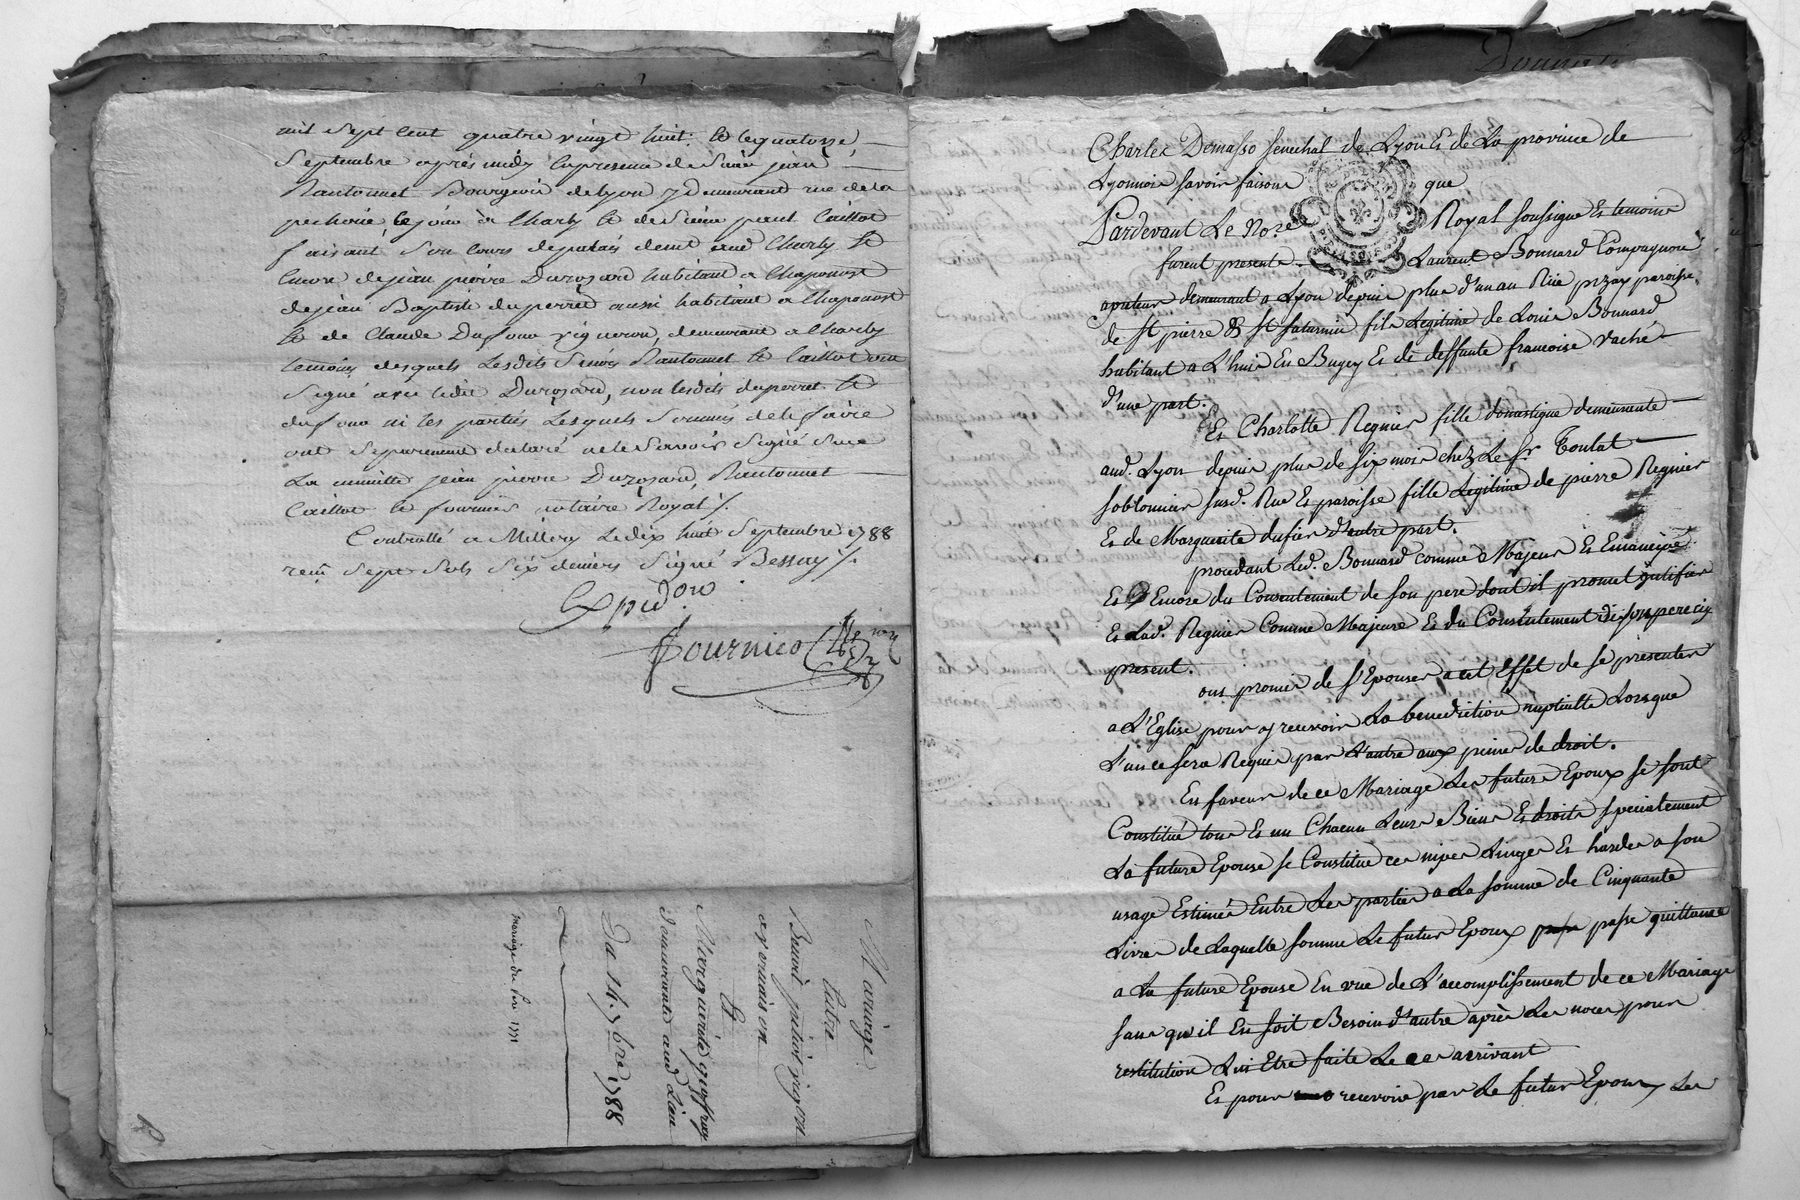 mil sept cent quatre vingt huit: le quatorze
Septembre après midy en presence de Sieur jean
Nantonnet Bourgeois de Lyon y demeurant rue de la
pecherie, ce jour à Charly & de Sieur paul Caillot
faisant son cours de palais demt aud Charly &
encore de jean pierre Durozard habitant a Chaponost
de jean Baptiste duperret aussi habitant a Chaponost
& de Claude Dufour vigneron, demeurant a Charly
temoins desquels Lesdits Sieurs Nantonnet & Caillot ont
Signé avec ledit Durozard, non lesdits duperret &
dufour ni les parties Lesquels Sommés de le faire
ont Separement declaré ne le Savoir Signé Sur
La minutte jean pierre Durozard, Nantonnet
Caillot & fournier notaire Royal /.
Controllé a Millery Le dix huit Septembre 1788
reçu Sept Sols Six deniers Signé Bessay /.
Expedon
Fournier
Mariage
Entre
Benoit vigneron
a
&
Marguerite
demeurante aud Lieu
Du 14. 7bre 1788
Mariage du Pere 1771
Charles Demasso Senechal de Lyon Et de La province de
Lyonnois Savoir faisons que
Pardevant Le Nore Royal soussigné Et temoins
furent presents Laurent Bonnard Compagnon
demeurant a Lyon depuis plus d'un an Rue pizay paroisse
de St pierre & St Saturnin fils Legitime de Louis Bonnard
habitant a L'huis En Bugey Et de deffunte francoise Vaché
d'une part.
Et Charlotte Regnier fille domestique demeurante
aud. Lyon depuis plus de six mois chez Le Sr Toulat
sablonnier susd. Rue Et paroisse fille Legitime de pierre Regnier
Et de Marguerite dufier d'autre part.
procedant Led. Bonnard comme Majeur Et Emancipé
Et Encore du Consentement de son pere dont il promet justifier
Et Lad. Regnier Comme Majeure Et du Consentement de son pere icy
present.
ont promis de s'Epouser a cet Effet de se presenter
a L'Eglise pour y recevoir La benediction nuptialle Lorsque
L'un en sera Requis par L'autre aux peines de droit.
En faveur de ce Mariage Les futurs Epoux se sont
Constitué tous Et un Chacun Leurs Biens Et droits specialement
La future Epouse se Constitue ses nipes Linges Et hardes a son
usage Estimés Entre Les parties a La somme de Cinquante
Livres de Laquelle somme Le futur Epoux passe quittance
a La future Epouse En vue de L'accomplissement de ce Mariage
sans qu'il En soit Besoin d'autre après Les noces pour
restitution Lui Etre faite Le cas arrivant
Et pour recevoir par Le futur Epoux Les